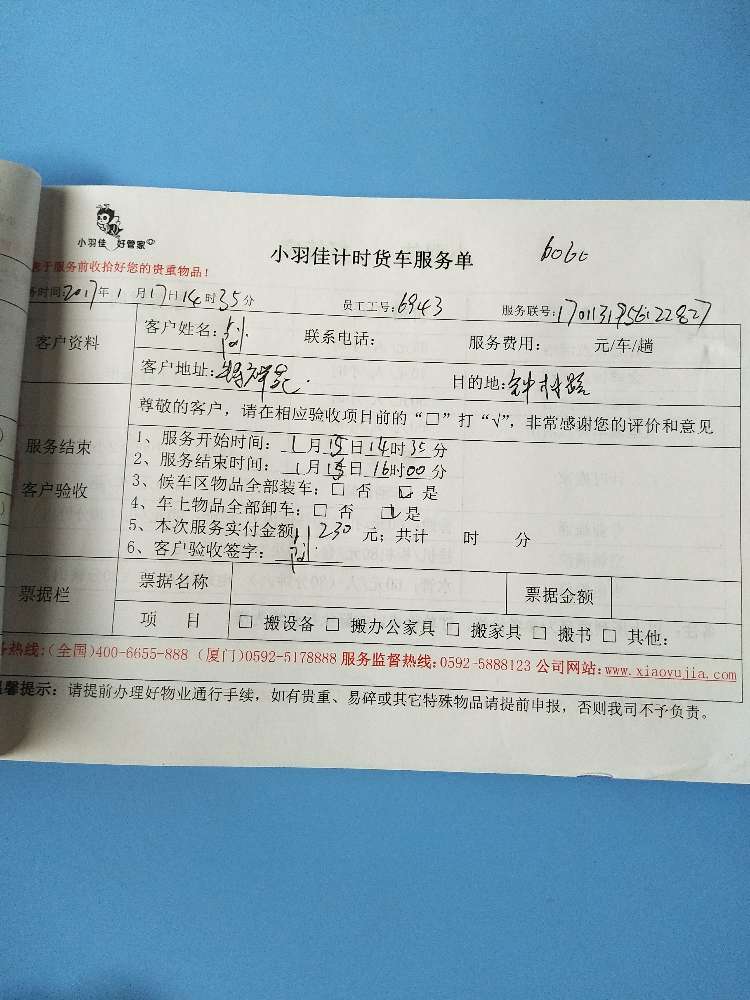 小羽佳 好管家
小羽佳计时货车服务单
于服务前收拾好您的贵重物品!
务时间:2017年1月17日14时35分 员工工号:6943 服务联号:
客户资料 客户姓名: 联系电话: 服务费用: 元/车/趟
客户地址: 目的地:
尊敬的客户,请在相应验收项目前的“□”打“√”,非常感谢您的评价和意见
服务结束
客户验收
1、服务开始时间:1月15日14时35分
2、服务结束时间:1月15日16时00分
3、候车区物品全部装车:□ 否 ☑ 是
4、车上物品全部卸车:□ 否 ☑ 是
5、本次服务实付金额: 230元;共计 时 分
6、客户验收签字:
票据栏 票据名称 票据金额
项 目 □ 搬设备 □ 搬办公家具 □ 搬家具 □ 搬书 □ 其他:
务热线:(全国)400-6655-888 (厦门)0592-5178888 服务监督热线:0592-5888123 公司网站:www.xiaoyujia.com
温馨提示:请提前办理好物业通行手续,如有贵重、易碎或其它特殊物品请提前申报,否则我司不予负责。